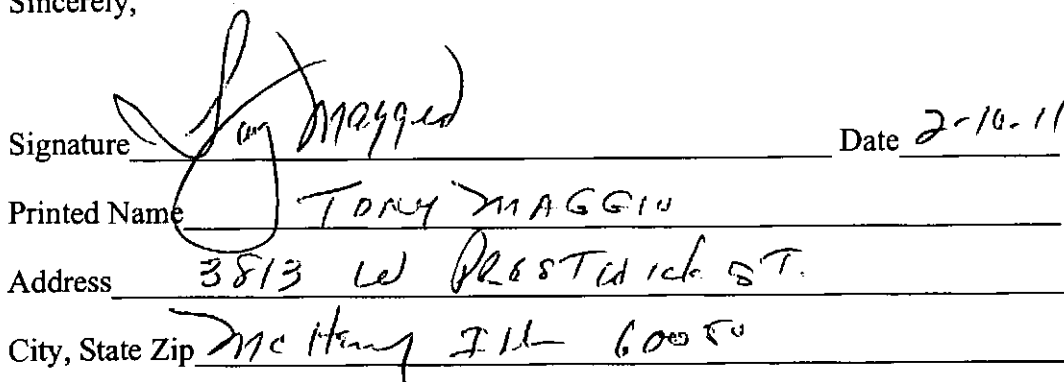 Sincerely,
Signature Tony Maggio Date 2-10-11
Printed Name TONY MAGGIO
Address 3813 W PRESTWICK ST.
City, State Zip McHenry Ill 60050